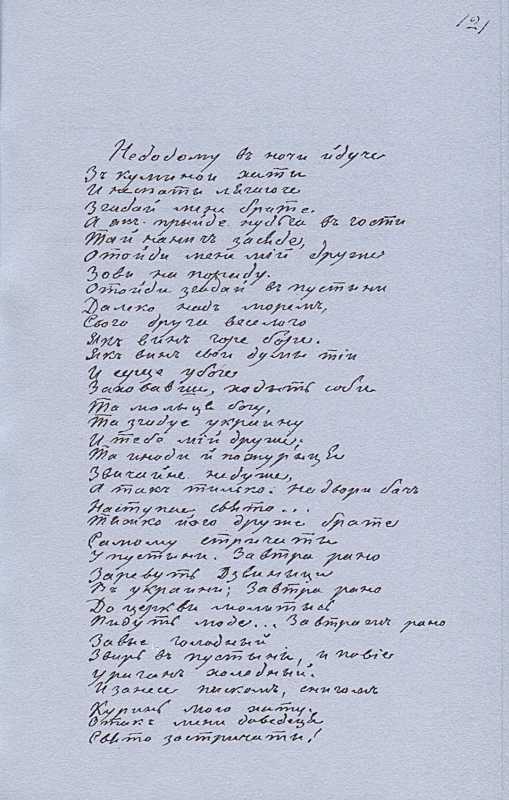 Недодому въ ночи йдучи
Зъ куминои хаты
И неспаты лягаюче
Згадай мене брате.
А якъ прыйде нудьга въ гости
Тай нанічъ засяде,
Отойди мене мій друже
Зови на пораду.
Отойди згадай въ пустыни
Далеко надъ моремъ,
Свого друга веселого
Якъ винъ горе боре.
Якъ винъ свои думы тіи
И серце убоге
Заховавши, ходыть соби
Та молыця богу,
Та згадує украину
И тебе мій друже.
Та иноди й пожурыця
Звичайне недуже,
А такъ тилько. надвори бачъ
Наступає свято...
Тяжко його друже брате
Самому стричати
У пустыни. Завтра рано
Заревуть Дзвиници
Въ украини; Завтра рано
До церкви молитысь
Пидуть люде... Завтражъ рано
Завые голодный
Звирь въ пустыни, и повіе
Ураганъ холодный.
И занесе пискомъ, снигомъ
Куринь мою хату.
Отакъ мени доведеця
Свято зостричаты!